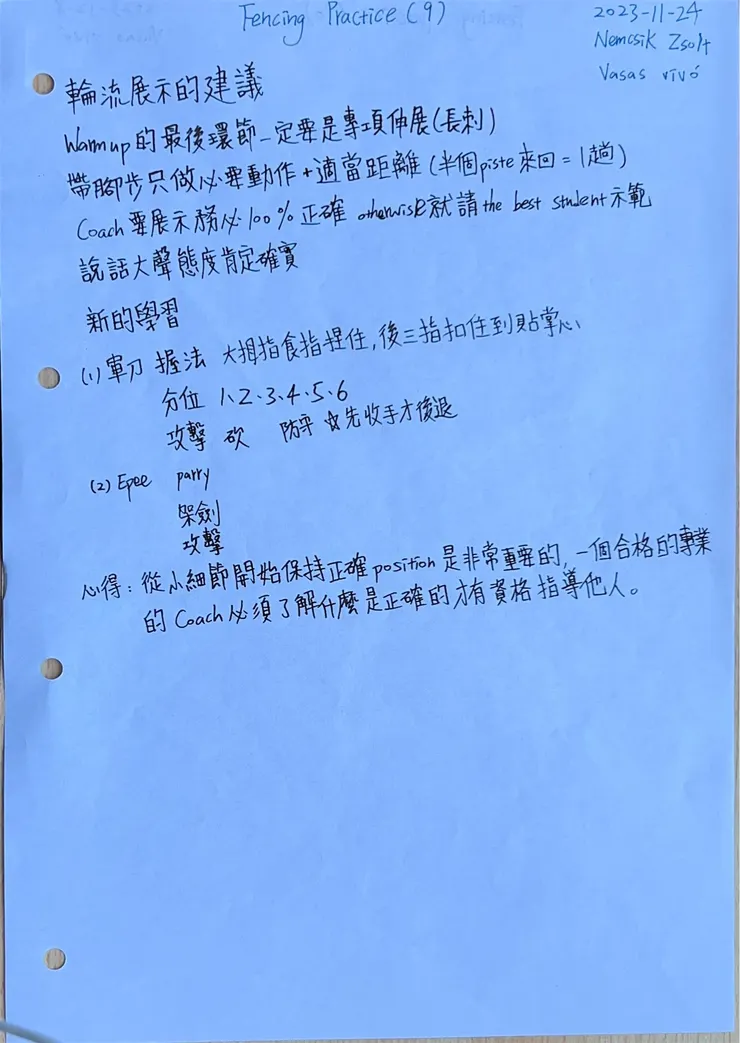 Fencing Practice (9)
2023-11-24
Nemcsik Zsolt
Vasas vívó
輪流展示的建議
Warm up 的最後環節一定要是專項伸展(長刺)
帶腳步只做必要動作+適當距離(半個piste來回=1趟)
Coach要展示務必100%正確 otherwise就請the best student示範
說話大聲態度肯定確實
新的學習
(1) 軍刀 握法 大拇指食指捏住,後三指扣住到貼掌心
分位 1、2、3、4、5、6
攻擊 砍 防守 ☆先收手才後退
(2) Epee parry
架劍
攻擊
心得:從小細節開始保持正確position是非常重要的,一個合格的專業
的Coach必須了解什麼是正確的才有資格指導他人。